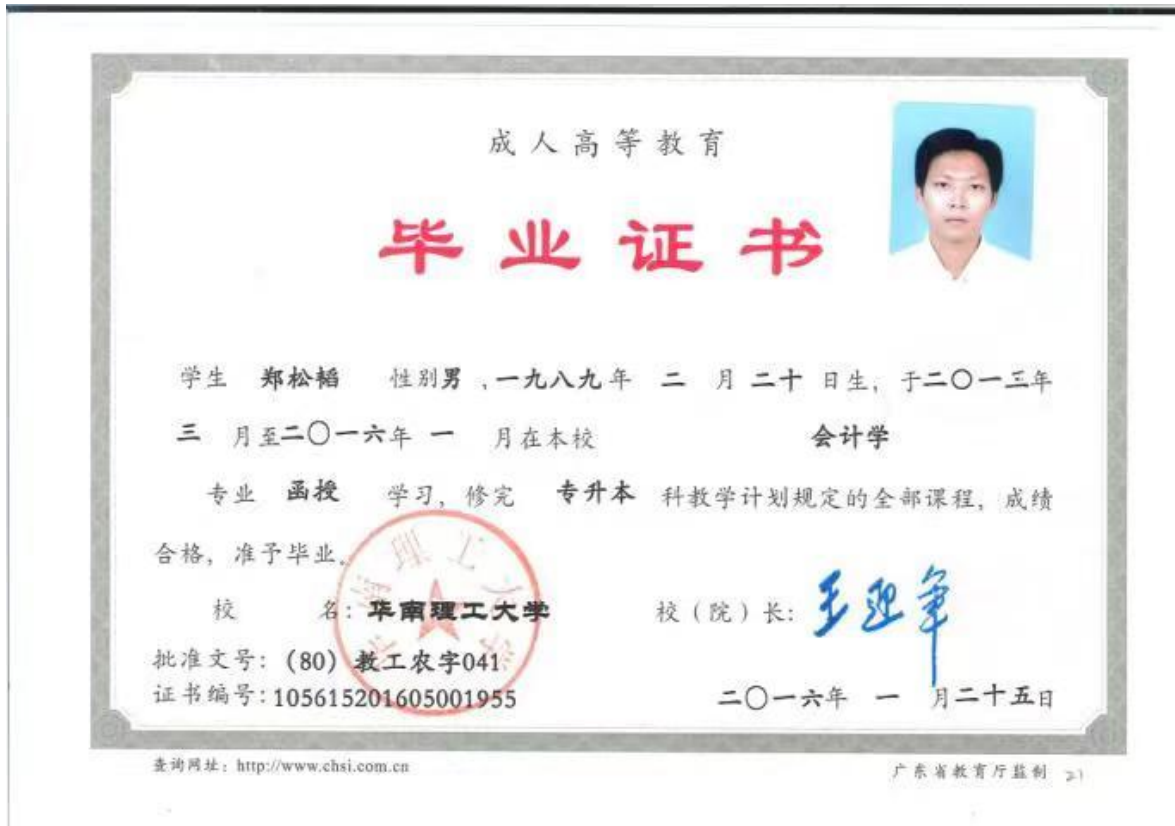 成人高等教育
毕业证书
学生 郑松韬 性别男 ,一九八九年 二 月 二十 日生, 于二〇一三年
三 月至二〇一六年 一 月在本校 会计学
专业 函授 学习, 修完 专升本 科教学计划规定的全部课程, 成绩
合格, 准予毕业。
校 名: 华南理工大学 校(院)长: 王迎军
批准文号: (80) 教工农字041
证书编号: 105615201605001955 二〇一六年 一 月二十五日
查询网址: http://www.chsi.com.cn 广东省教育厅监制 21
华南理工大学